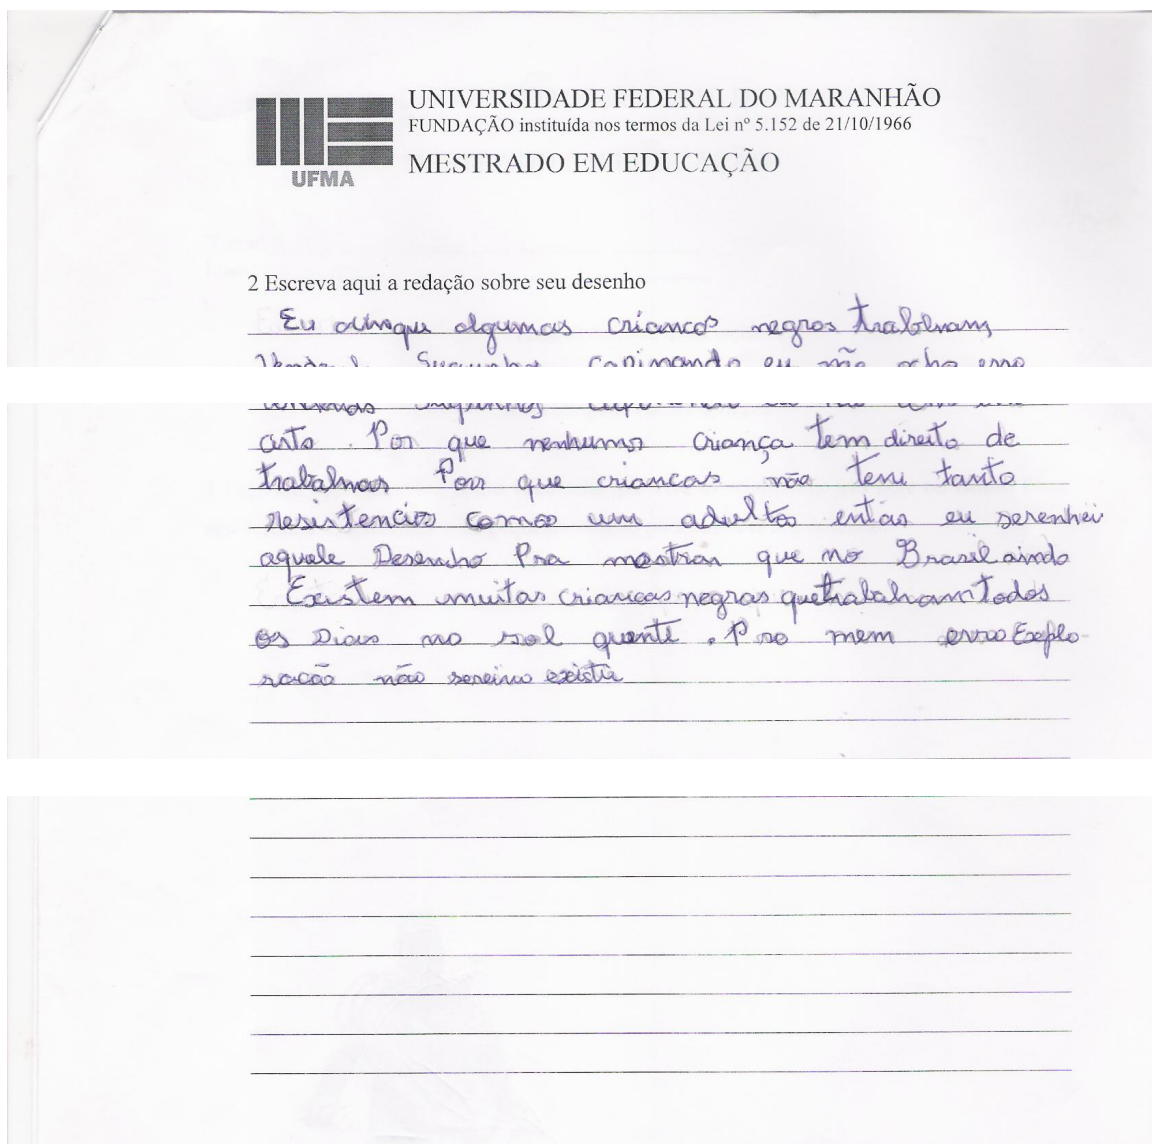 UNIVERSIDADE FEDERAL DO MARANHÃO
FUNDAÇÃO instituída nos termos da Lei nº 5.152 de 21/10/1966
MESTRADO EM EDUCAÇÃO
UFMA
2 Escreva aqui a redação sobre seu desenho
Eu algumas criancas negras trabalham,
capinando eu não acho esso
certo. Por que nenhuma criança tem direito de
trabalhar Por que criancas não tem tanto
resistencia como um adulto então eu desenhei
aquele Desenho Pra mostrar que no Brasil ainda
Existem muitas criancas negras que trabalham Todos
os Dias no sol quente. Pra mem essa Explo-
racão não existir